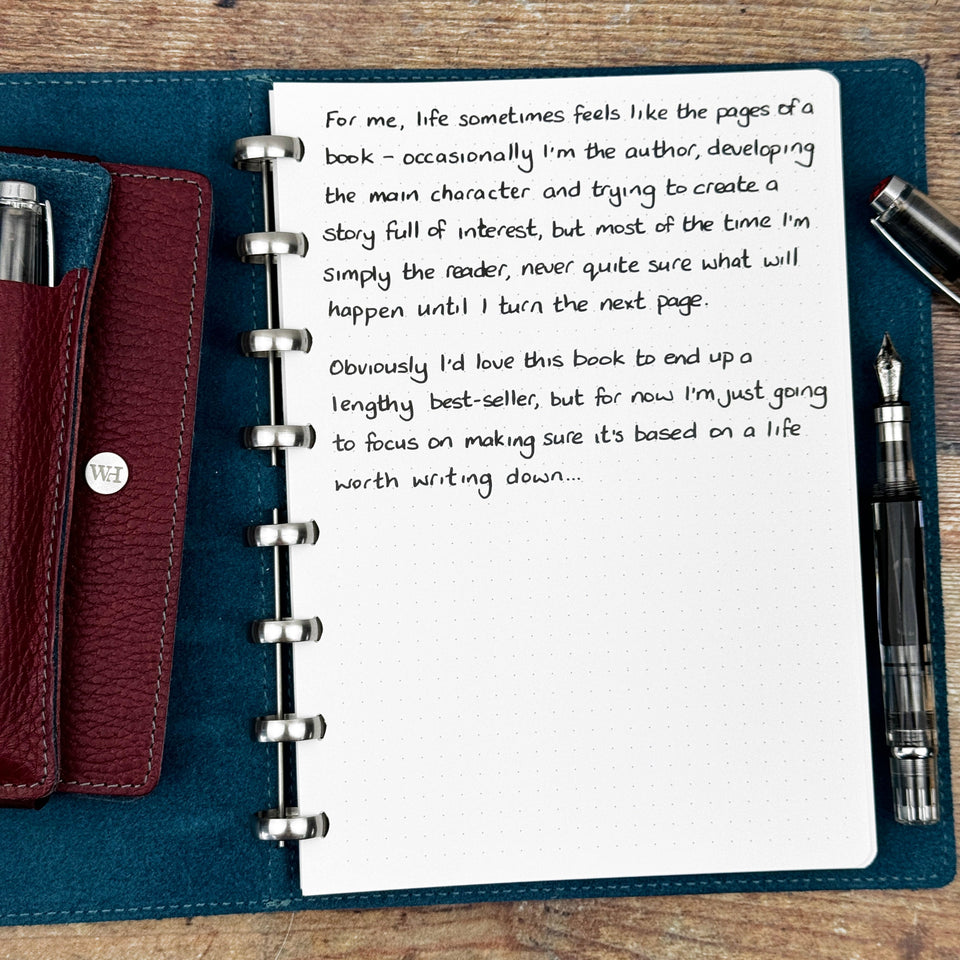 For me, life sometimes feels like the pages of a
book – occasionally I'm the author, developing
the main character and trying to create a
story full of interest, but most of the time I'm
simply the reader, never quite sure what will
happen until I turn the next page.
Obviously I'd love this book to end up a
lengthy best-seller, but for now I'm just going
to focus on making sure it's based on a life
worth writing down...
WH